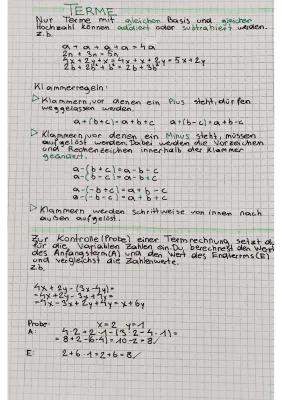 TERME
Nur Terme mit gleicher Basis und gleicher
Hochzahl können addiert oder subtrahiert werden.
z.b.
a + a + a + a = 4a
2n + 3n = 5n
4x + 2y + x = 4x + x + 2y = 5x + 2y
2b + 2b² + b² = 2b + 3b²
Klammerregeln:
Klammern, vor denen ein Plus steht, dürfen
weggelassen werden.
a + (b + c) = a + b + c a + (b - c) = a + b - c
Klammern, vor denen ein Minus steht, müssen
aufgelöst werden. Dabei werden die Vorzeichen
und Rechenzeichen innerhalb der Klammer
geändert.
a - (b + c) = a - b - c
a - (b - c) = a - b + c
a - (-b + c) = a + b - c
a - (-b - c) = a + b + c
Klammern werden schrittweise von innen nach
außen aufgelöst.
Zur Kontrolle (Probe) einer Termrechnung setzt du
für die Variablen Zahlen ein. Du berechnest den Wert
des Anfangsterms (A) und den Wert des Endterms (E)
und vergleichst die Zahlenwerte.
z.b.
4x + 2y - (3x - 4y) =
= 4x + 2y - 3x + 4y =
= 4x - 3x + 2y + 4y = x + 6y
Probe: x = 2 y = 1
A: 4·2 + 2·1 - (3·2 - 4·1) =
= 8 + 2 - (6 - 4) = 10 - 2 = 8
E: 2 + 6·1 = 2 + 6 = 8